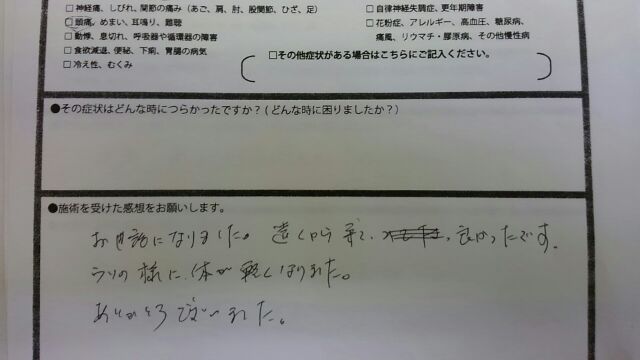 □神経痛、しびれ、関節の痛み（あご、肩、肘、股関節、ひざ、足）
□頭痛、めまい、耳鳴り、難聴
□動悸、息切れ、呼吸器や循環器の障害
□食欲減退、便秘、下痢、胃腸の病気
□冷え性、むくみ
□自律神経失調症、更年期障害
□花粉症、アレルギー、高血圧、糖尿病、
痛風、リウマチ・膠原病、その他慢性病
□その他症状がある場合はこちらにご記入ください。
●その症状はどんな時につらかったですか？(どんな時に困りましたか？)
●施術を受けた感想をお願いします。
お世話になりました。遠くから来て、良かったです。
ウソの様に、体が軽くなりました。
ありがとうございました。